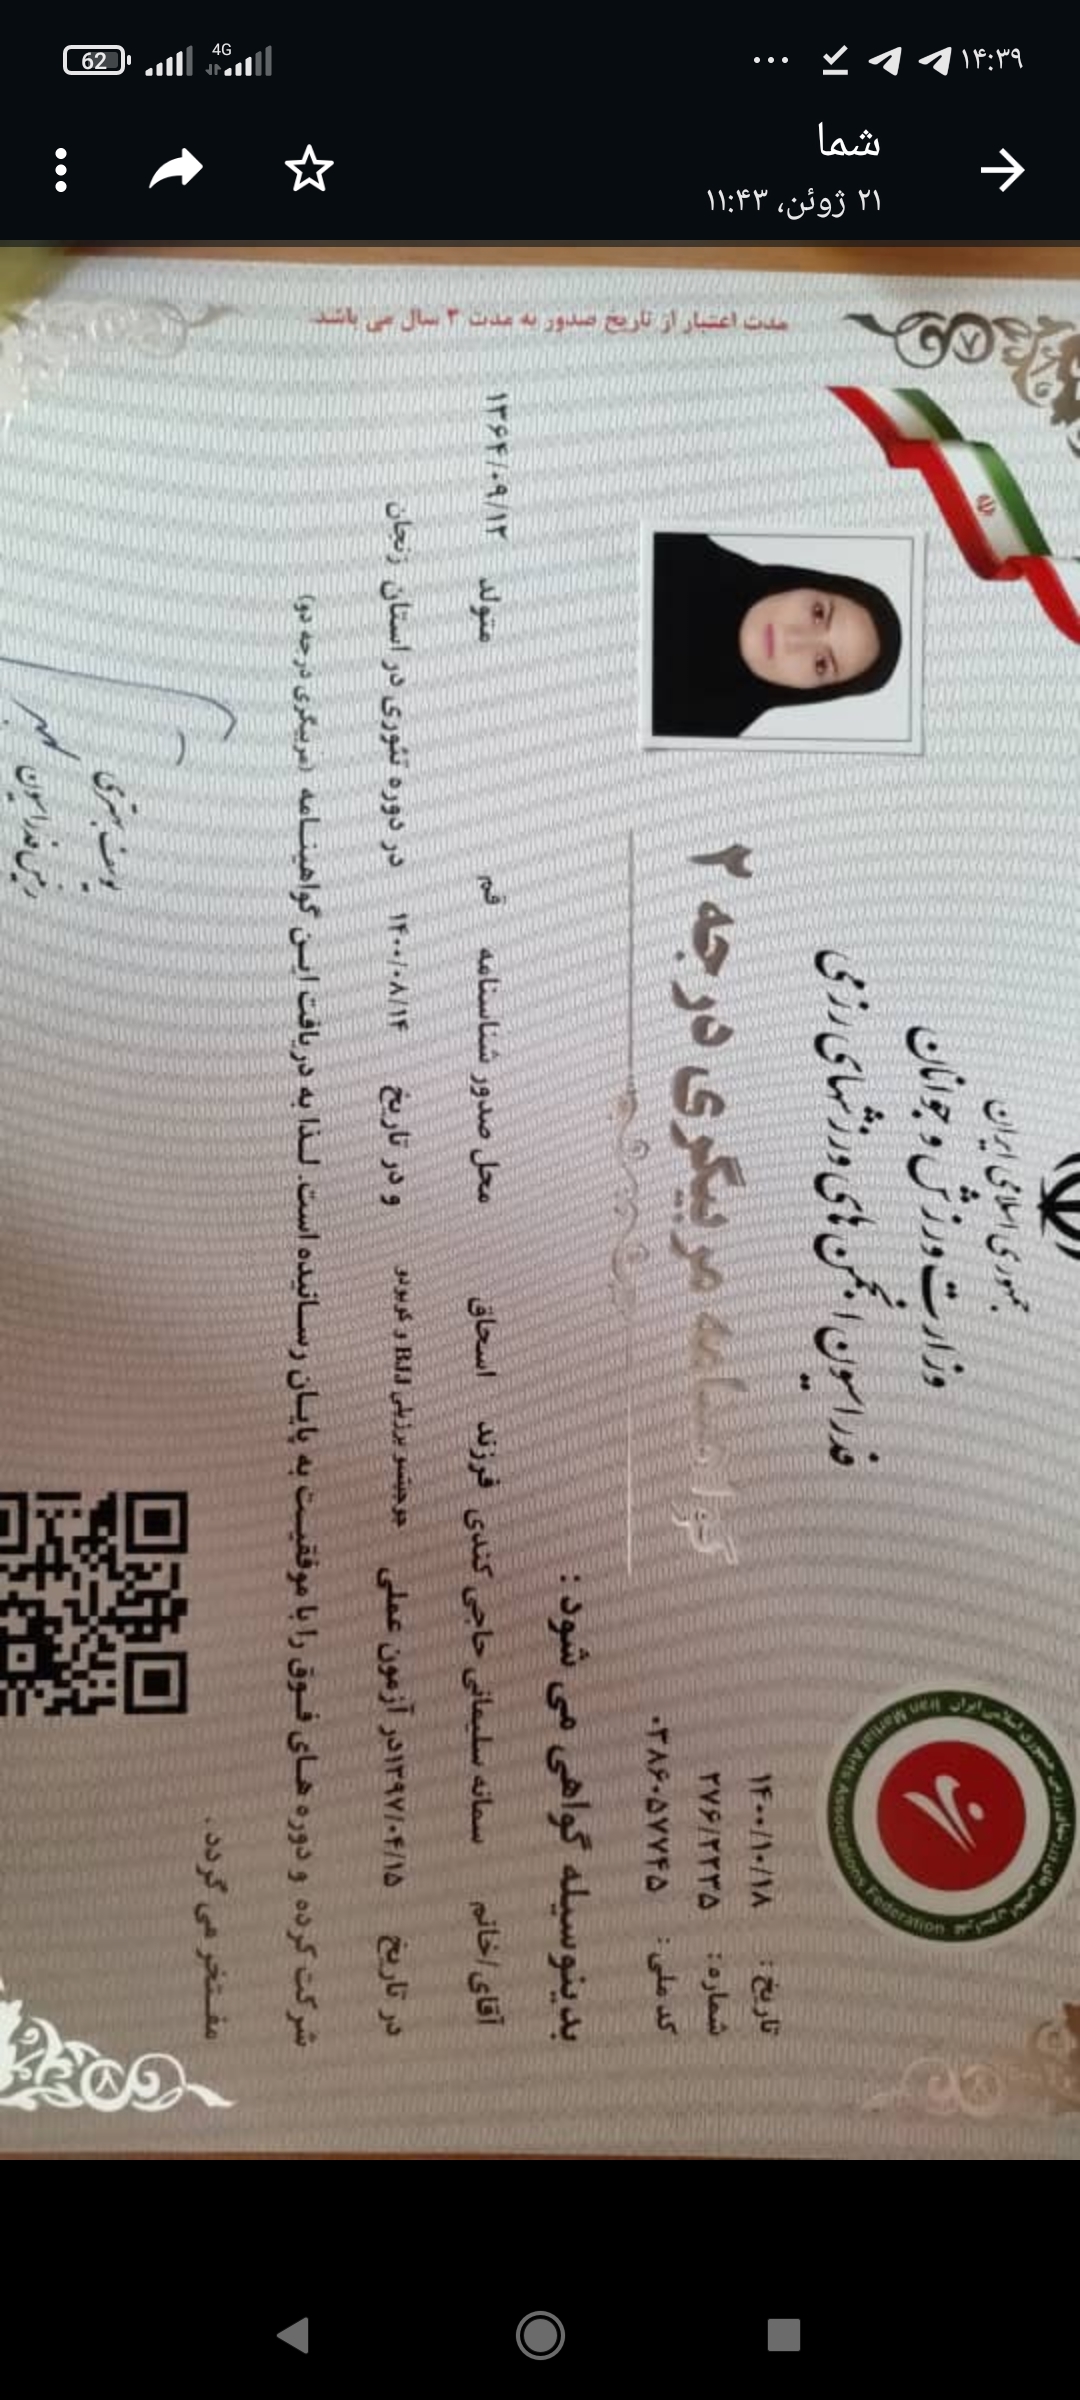 ۱۴:۳۹
4G
62
شما
۲۱ ژوئن، ۱۱:۴۳
جمهوری اسلامی ایران
وزارت ورزش و جوانان
فدراسیون انجمن های ورزشهای رزمی
گواهینامه مربیگری درجه ۲
تاریخ : ۱۴۰۰/۱۰/۱۸
شماره : ۲۷۶/۲۲۳۵
کد ملی : ۰۳۸۶۰۵۷۷۴۵
بدینوسیله گواهی می شود :
آقای/خانم سمانه سلیمانی حاجی کندی فرزند اسحاق محل صدور شناسنامه قم متولد ۱۳۶۴/۰۹/۱۲
در تاریخ ۱۳۹۷/۰۴/۱۵در آزمون عملی جوجیتسو برزیلی BJJ و کوبودو و در تاریخ ۱۴۰۰/۰۸/۱۴ در دوره تئوری در استان زنجان
شرکت کرده و دوره های فوق را با موفقیت به پایان رسانیده است. لذا به دریافت این گواهینامه (مربیگری درجه دو)
مفتخر می گردد.
رئیس فدراسیون
مدت اعتبار از تاریخ صدور به مدت ۳ سال می باشد
Iran Martial Arts Associations Federation